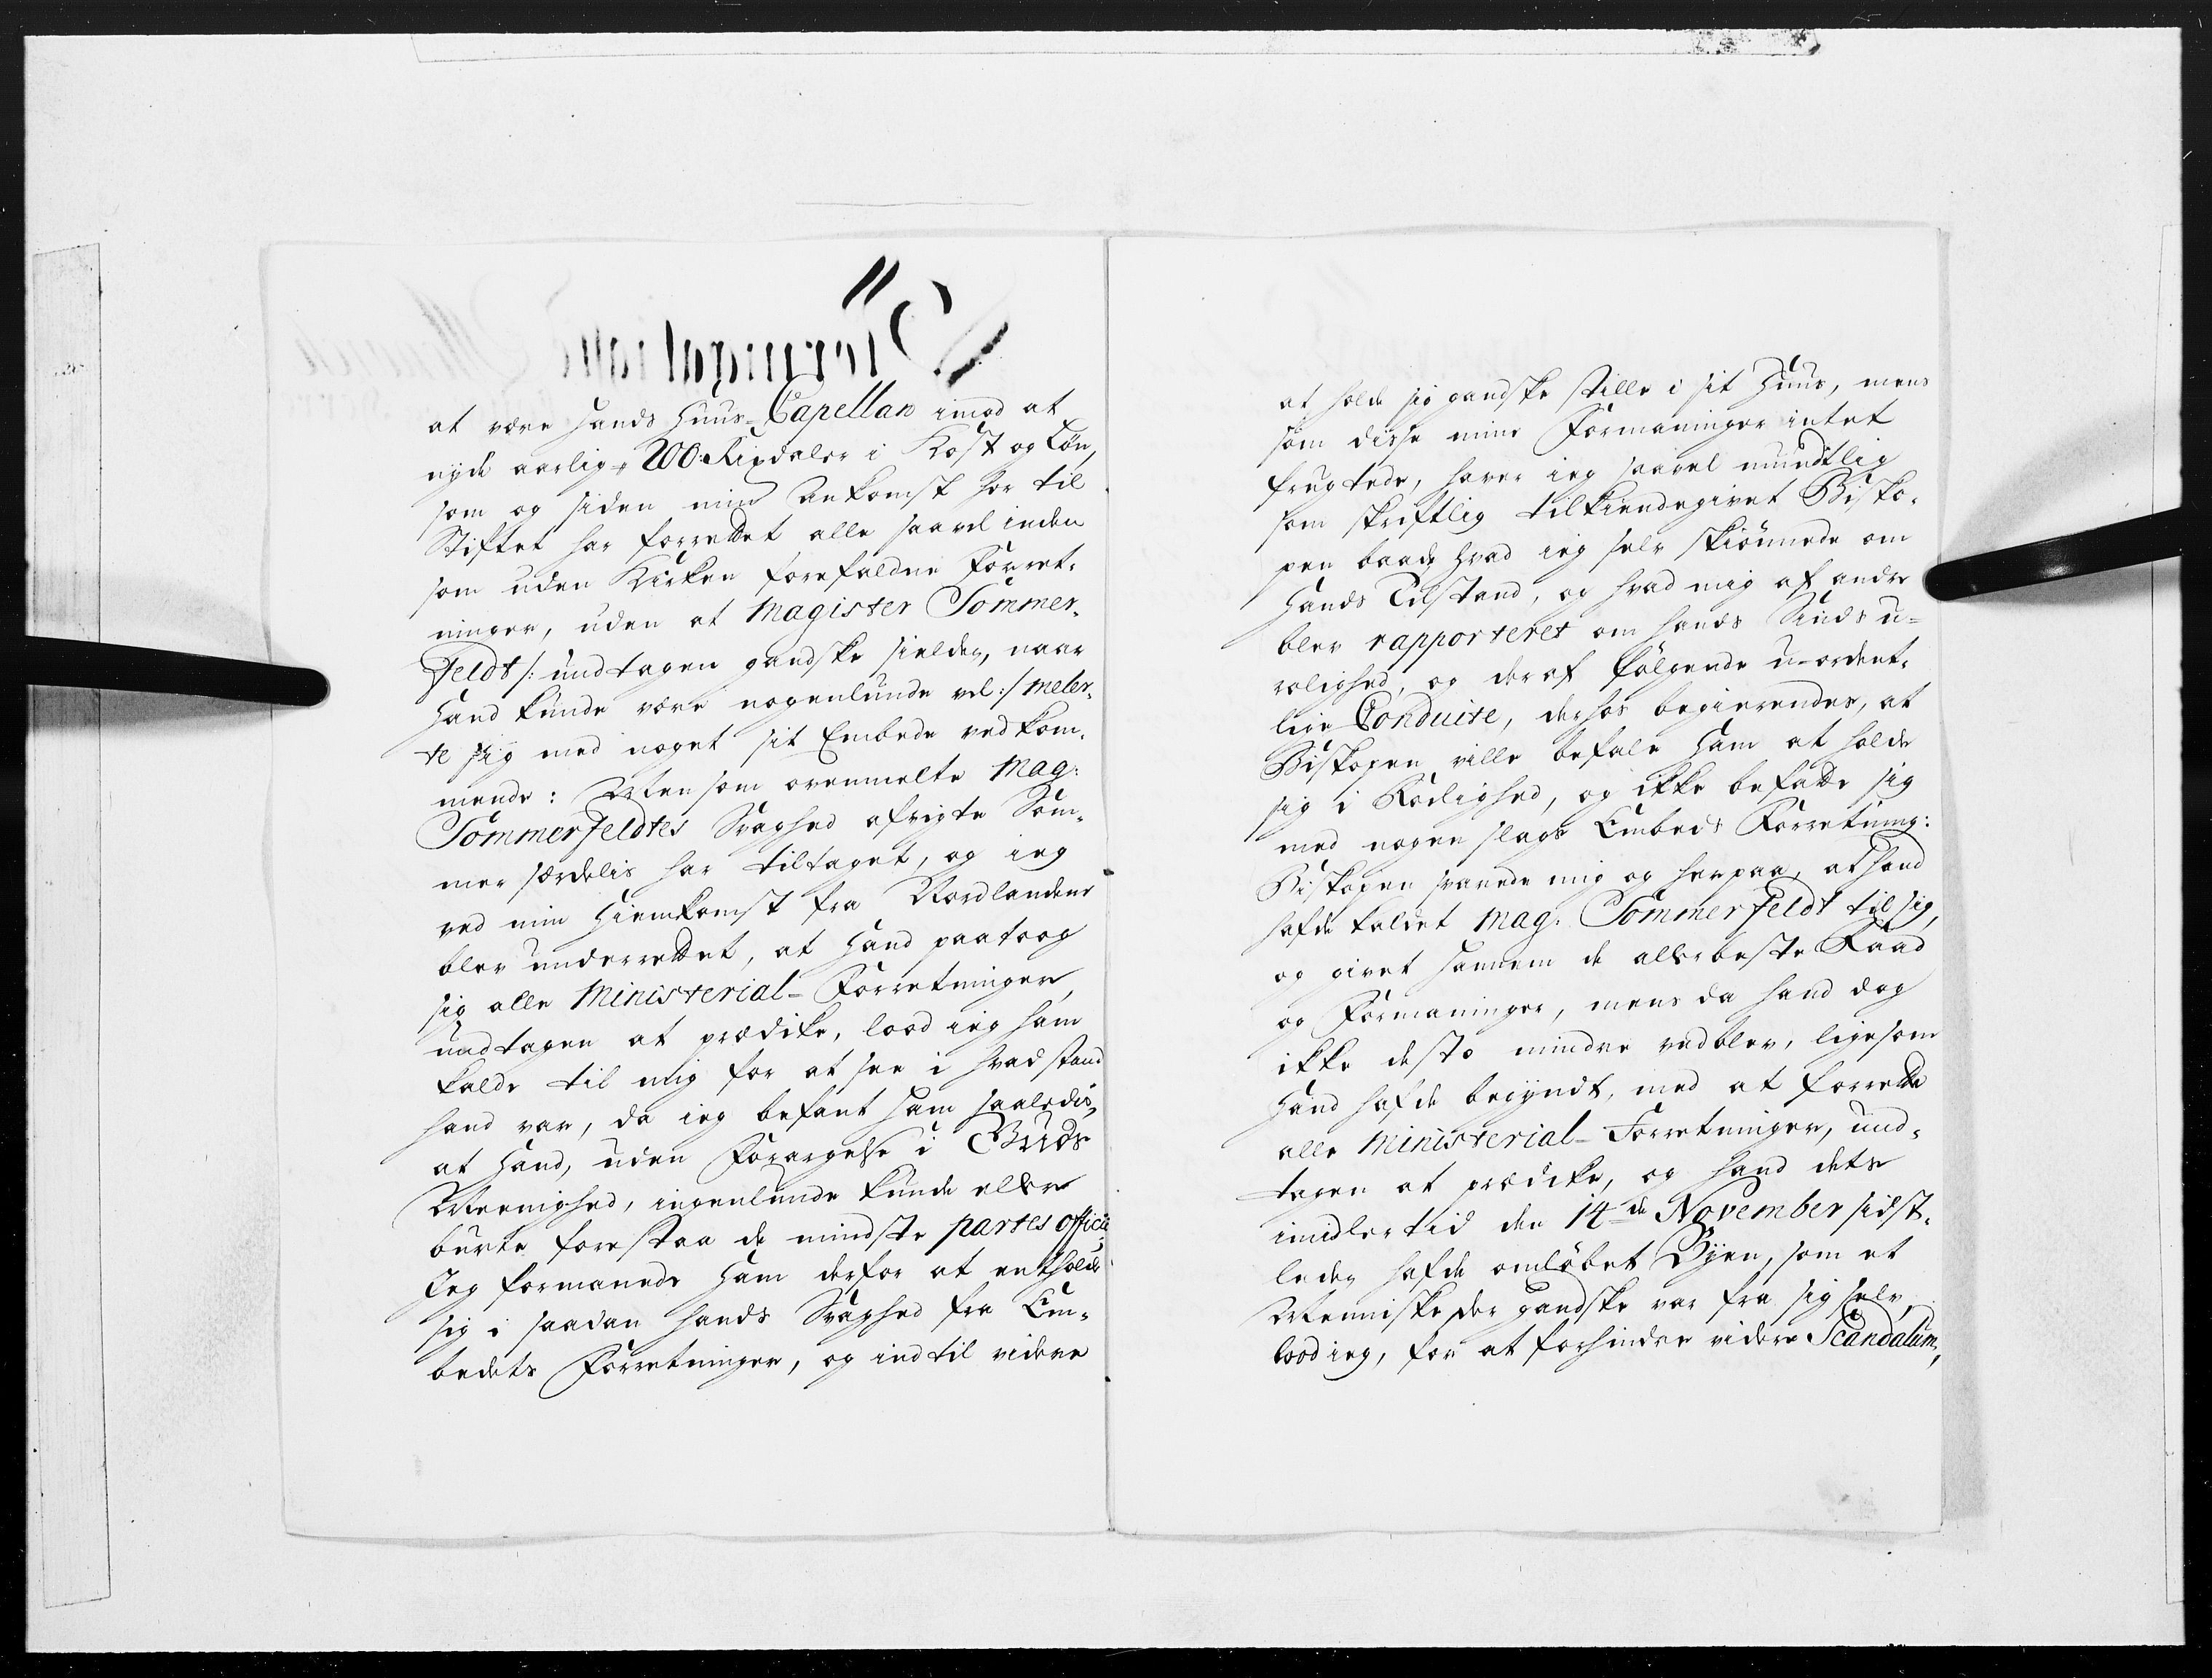 at være hands Huus-Capellan imod at
nyde aarlig 200: Rixdaler i Kost og Løn,
som og siden min Ankomst her til
Stiftet har forrettet alle saavel inden
som uden Kirken forefaldne Forret-
ninger, uden at Magister Sommer-
feldt /: undtagen gandske sielden, naar
Hand kunde være nogenlunde vel :/ meler-
te sig med noget sit Embede vedkom-
mende: Men som ovenmelte Mag:
Sommerfeldtes Svaghed afvigte Som-
mer særdelis har tiltaget, og ieg
ved min Hiemkomst fra Nordlandene
blev underrettet, at Hand paatoog
sig alle Ministerial-Forretninger,
undtagen at prædike, lood ieg ham
kalde til mig for at see i hvad stand
hand var, da ieg befant ham saaledis,
at Hand, uden Forargelse i Guds
Meenighed, ingenlunde kunde eller
burte forestaa de mindste partes officii,
Jeg formanede Ham derfor at entholde
sig i saadan hands Svaghed fra Em-
bedets Forretninger, og indtil videre
at holde sig gandske stille i sit Huus, mens
som disse mine Formaninger intet
frugtede, haver ieg saavel mundtlig
som skriftlig tilkiendegivet Bisko-
pen baade hvad ieg selv skiönnede om
Hands Tilstand, og hvad mig af andre
blev rapporteret om hands Sinds u-
rolighed, og deraf følgende u-ordent-
lige Conduite, derhos begierendes, at
Biskopen ville befale Ham at holde
sig i Rolighed, og ikke befatte sig
med nogen slags Embeds Forretning:
Biskopen svarede mig og herpaa, at hand
hafde kaldet Mag. Sommerfeldt til sig,
og givet hannem de allerbeste Raad
og Formaninger, mens da hand dog
ikke desto mindre vedblev, ligesom
Hand hafde begyndt, med at forrette
alle Ministerial-Forretninger, und-
tagen at prædike, og hand dets
imidlertid den 14de November sidst-
leden hafde omløbet Byen, som et
Menniske der gandske var fra sig selv,
lood ieg, for at forhindre videre Scandalum,